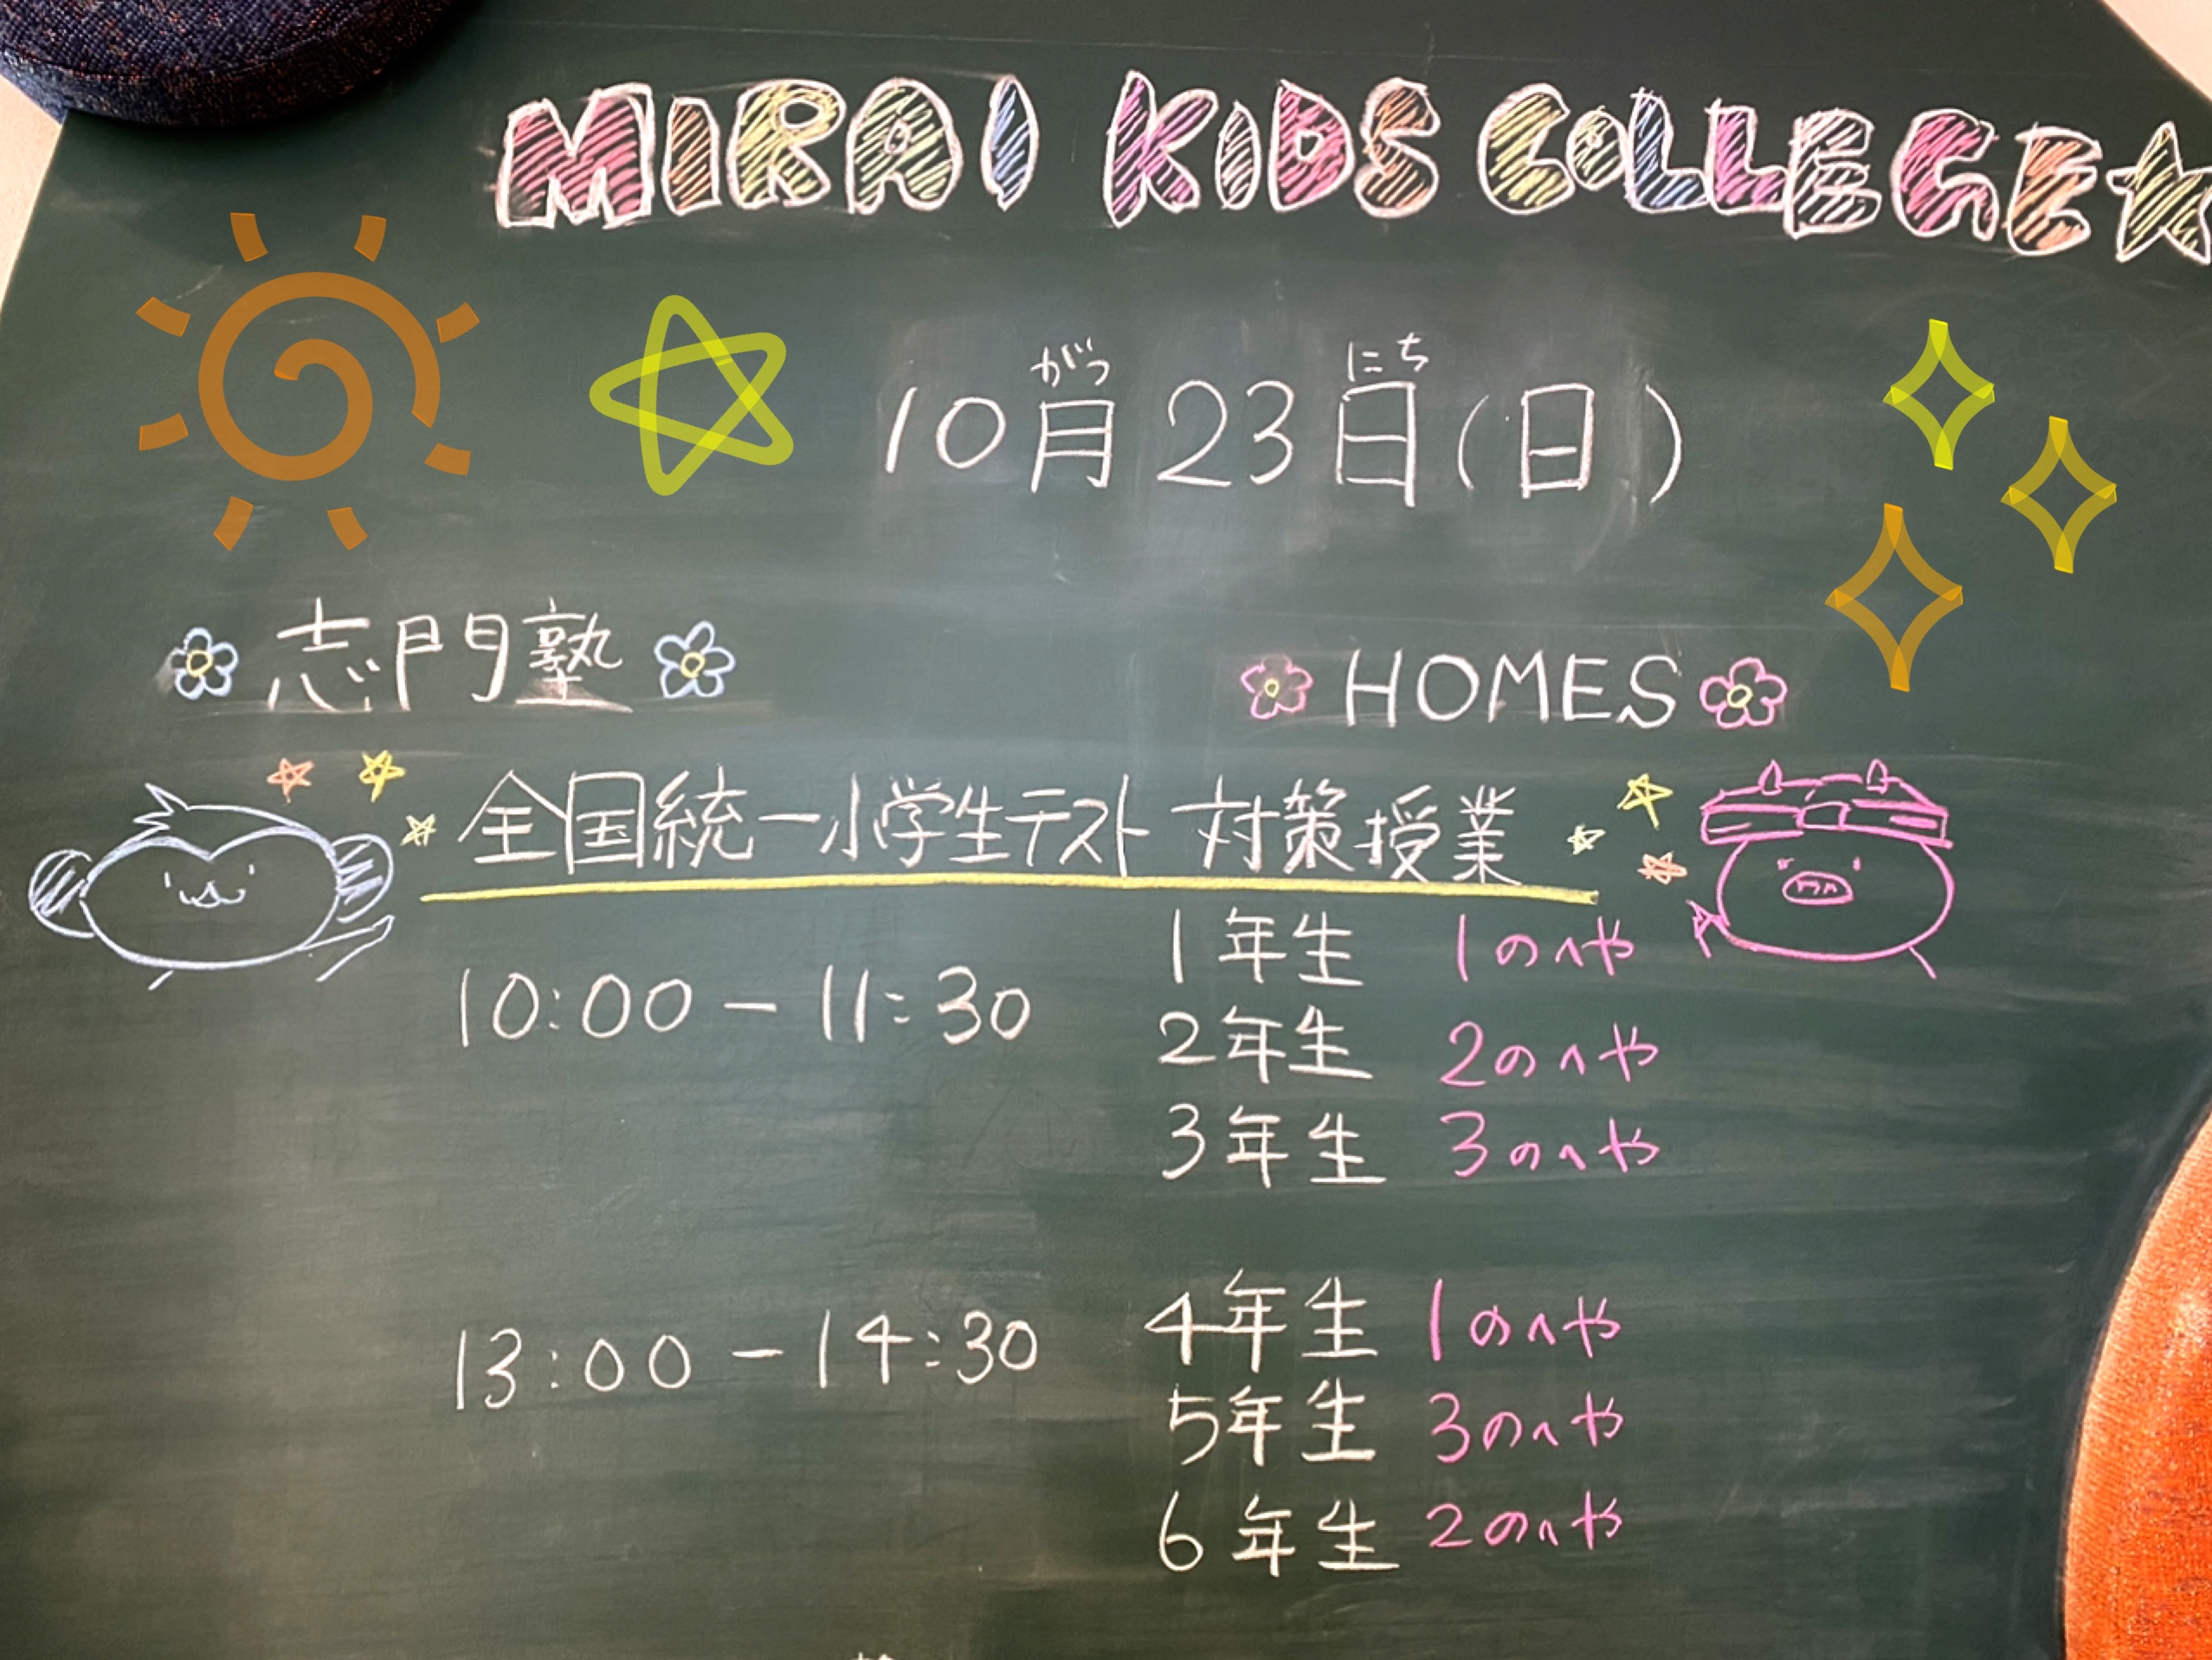 MIRAI KIDS COLLEGE☆
がつ にち
10月23日(日)
志門塾 HOMES
全国統一小学生テスト 対策授業
10:00-11:30
1年生 1のへや
2年生 2のへや
3年生 3のへや
13:00-14:30
4年生 1のへや
5年生 3のへや
6年生 2のへや